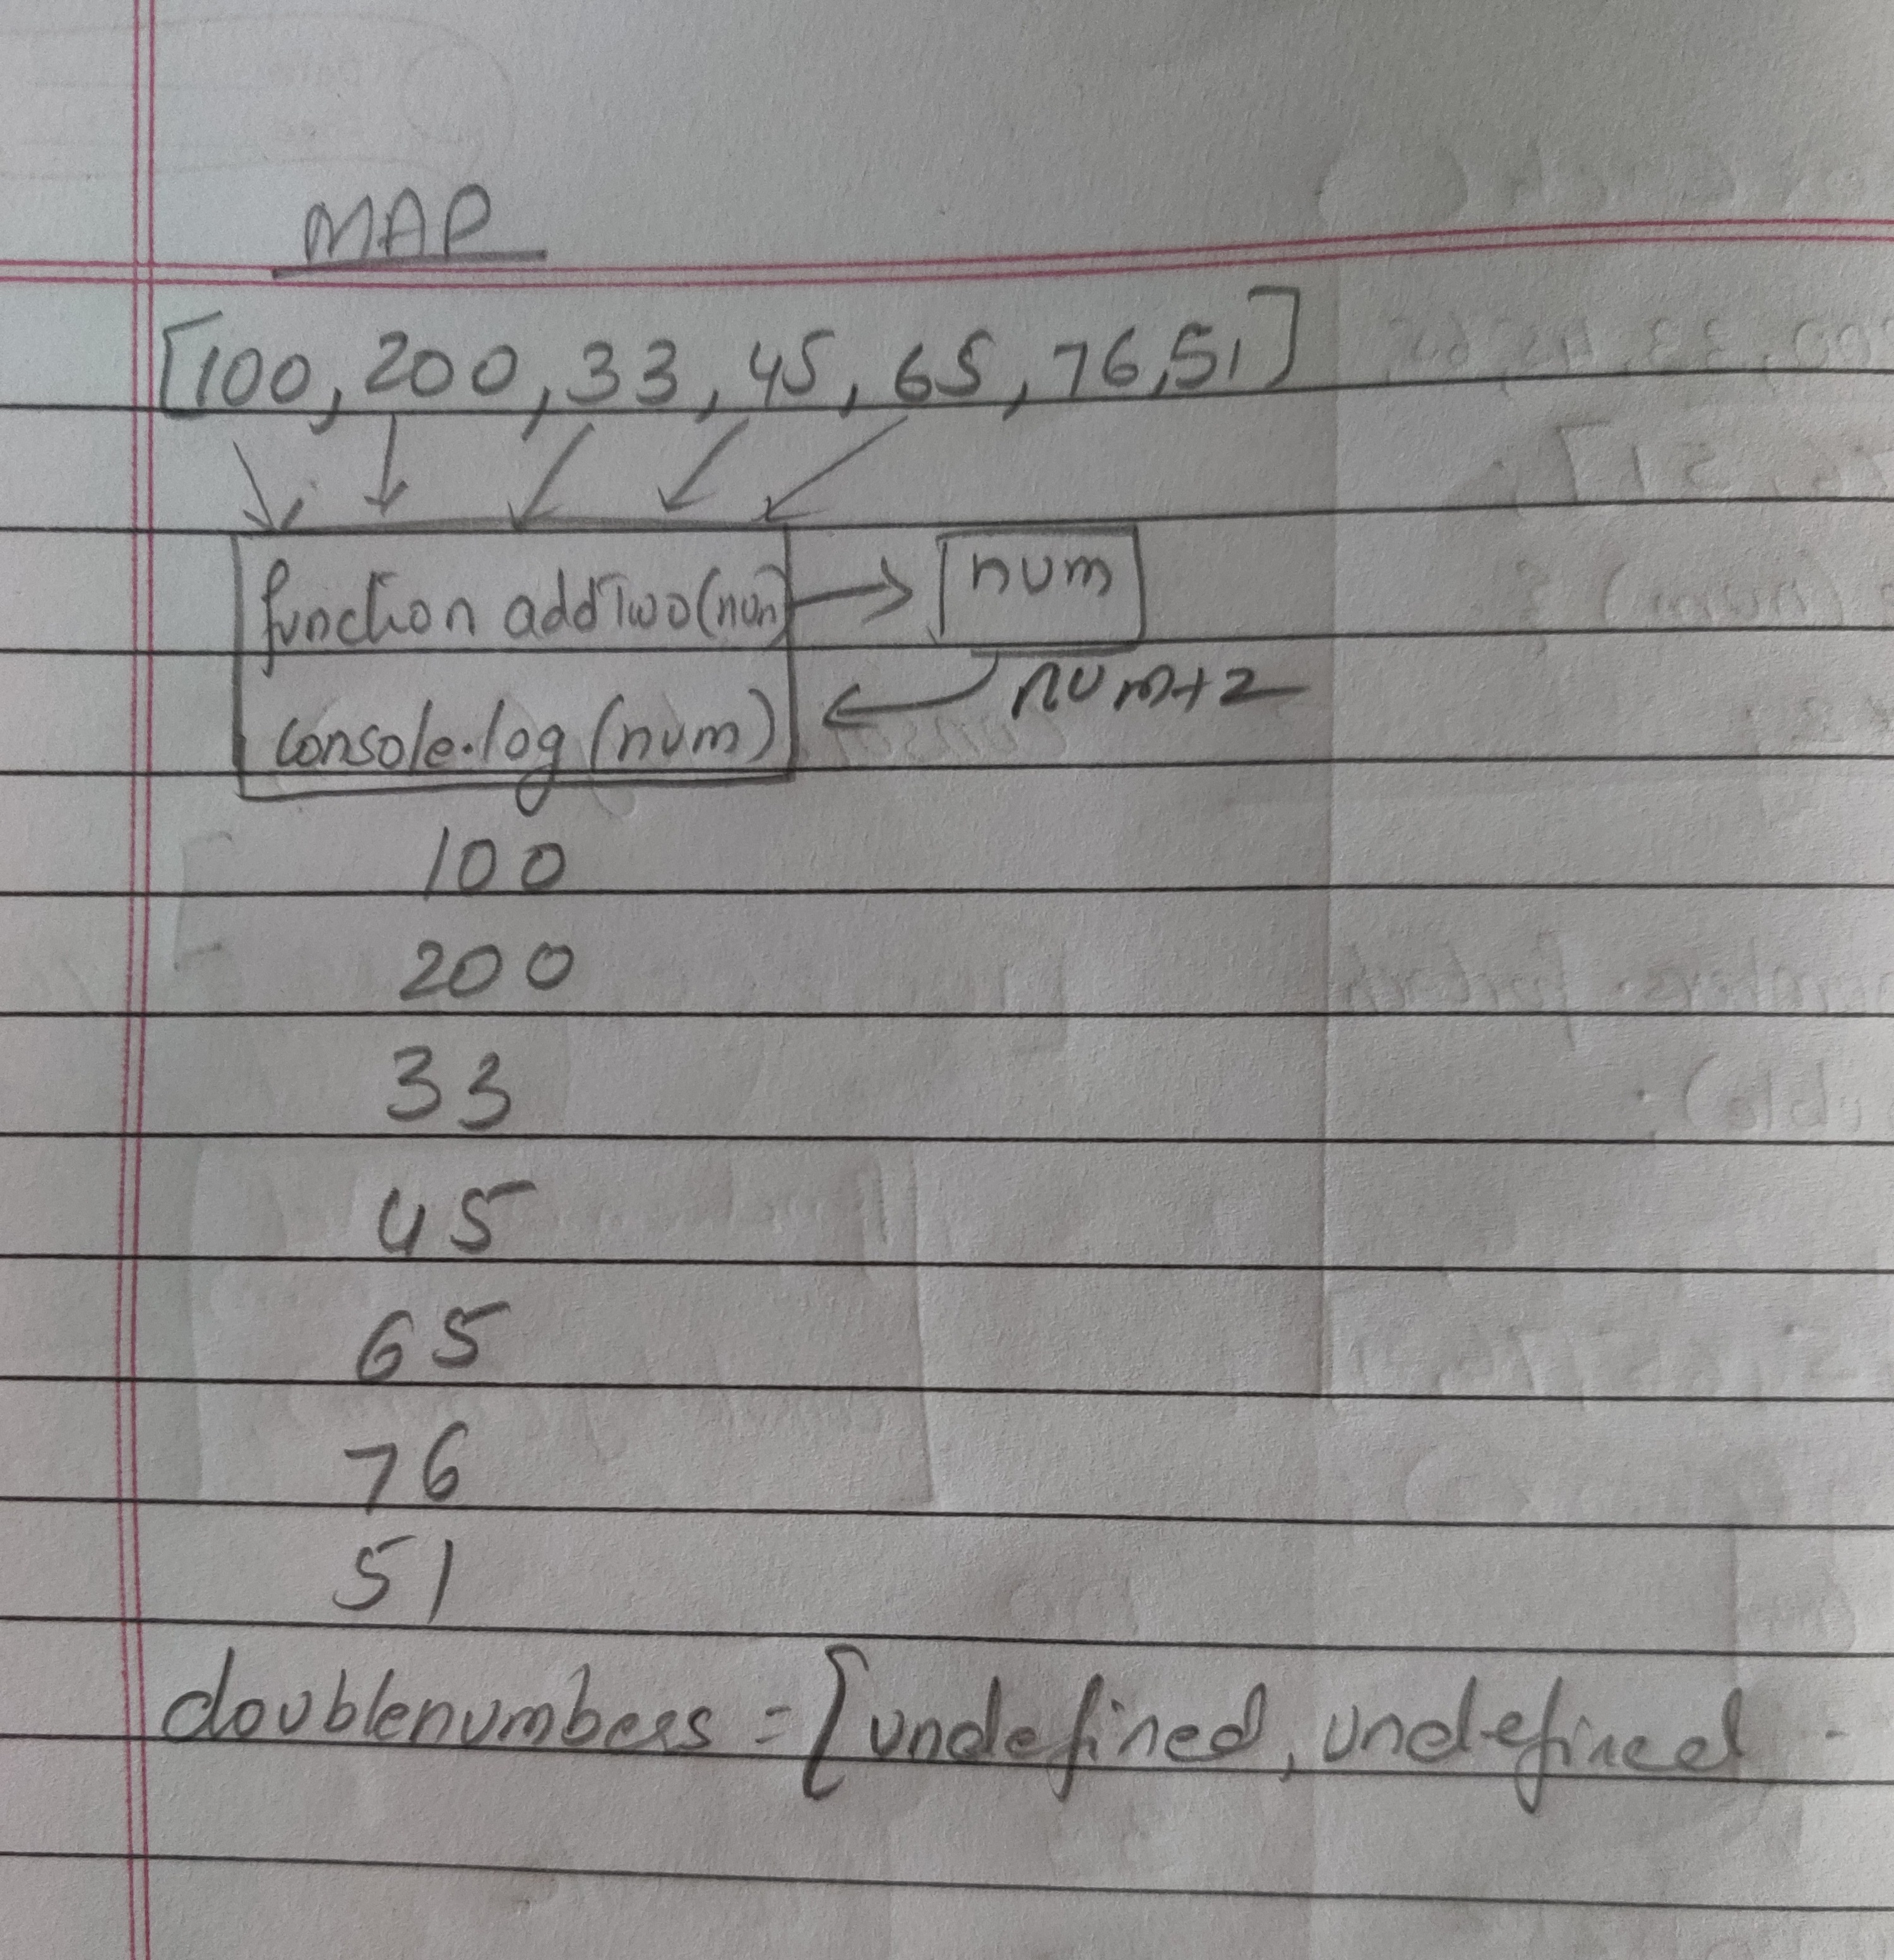 MAP
[100, 200, 33, 45, 65, 76, 51]
function addTwo(num) → num
num+2
console.log(num)
100
200
33
45
65
76
51
doublenumbers = [undefined, undefined